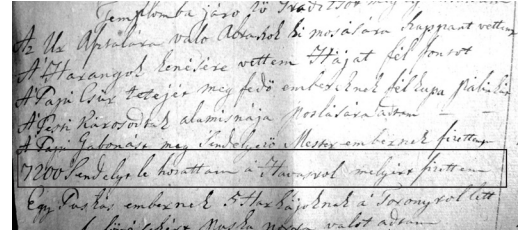 Templomba járo
Az Ur Asztalára valo Abraszok ki mosására Szappant vettem
A Harangok kenésére vettem Hájat fél fontot
A Papi Csűr tetejét meg fedő embereknek fél kupa Pálinkát
A Pesti Károsodtak alamisnája Postására adtam
A Papi Gabonást meg Sendelyező Mester embernek fizettem
7200 Sendelyt le hozattam a Havasrol melyért fizettem
Egy Puskás embernek 5 Harkájoknak a Toronyrol lett
Puska porra valot adtam